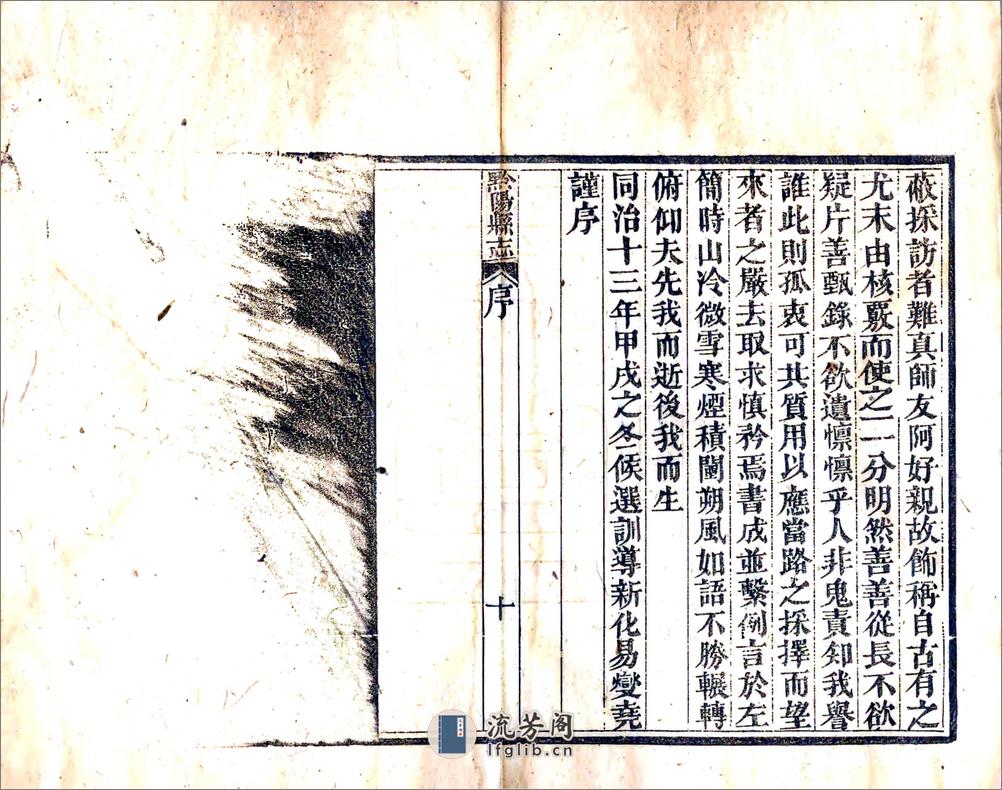 蔽採訪者難真師友阿好親故飾稱自古有之
尤末由核覈而使之一一分明然善善從長不欲
疑片善甄錄不欲遺懍懍乎人非鬼責知我譽
誰此則孤衷可共質用以應當路之採擇而望
來者之嚴去取求慎矜焉書成並繫例言於左
簡時山冷微雪寒煙積闉朔風如語不勝輾轉
俯仰夫先我而逝後我而生
同治十三年甲戌之冬候選訓導新化易燮堯
謹序
黔陽縣志 序 十
流芳阁
lfglib.cn